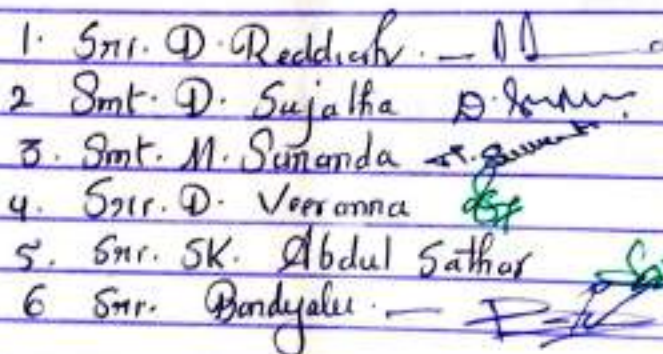 1. Sri. D. Reddiah. —
2 Smt. D. Sujatha
3. Smt. M. Sunanda
4. Sri. D. Veeranna
5. Sri. SK. Abdul Sathar
6 Sri. Bandyalu. —